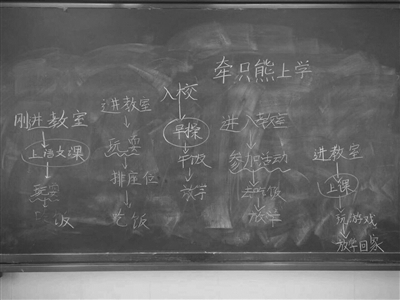 牵只熊上学
刚进教室
上语文课
饭
进教室
玩耍
排座位
吃饭
入校
早操
午饭
放学
进入教室
参加活动
去吃饭
放学
进教室
上课
玩游戏
放学回家